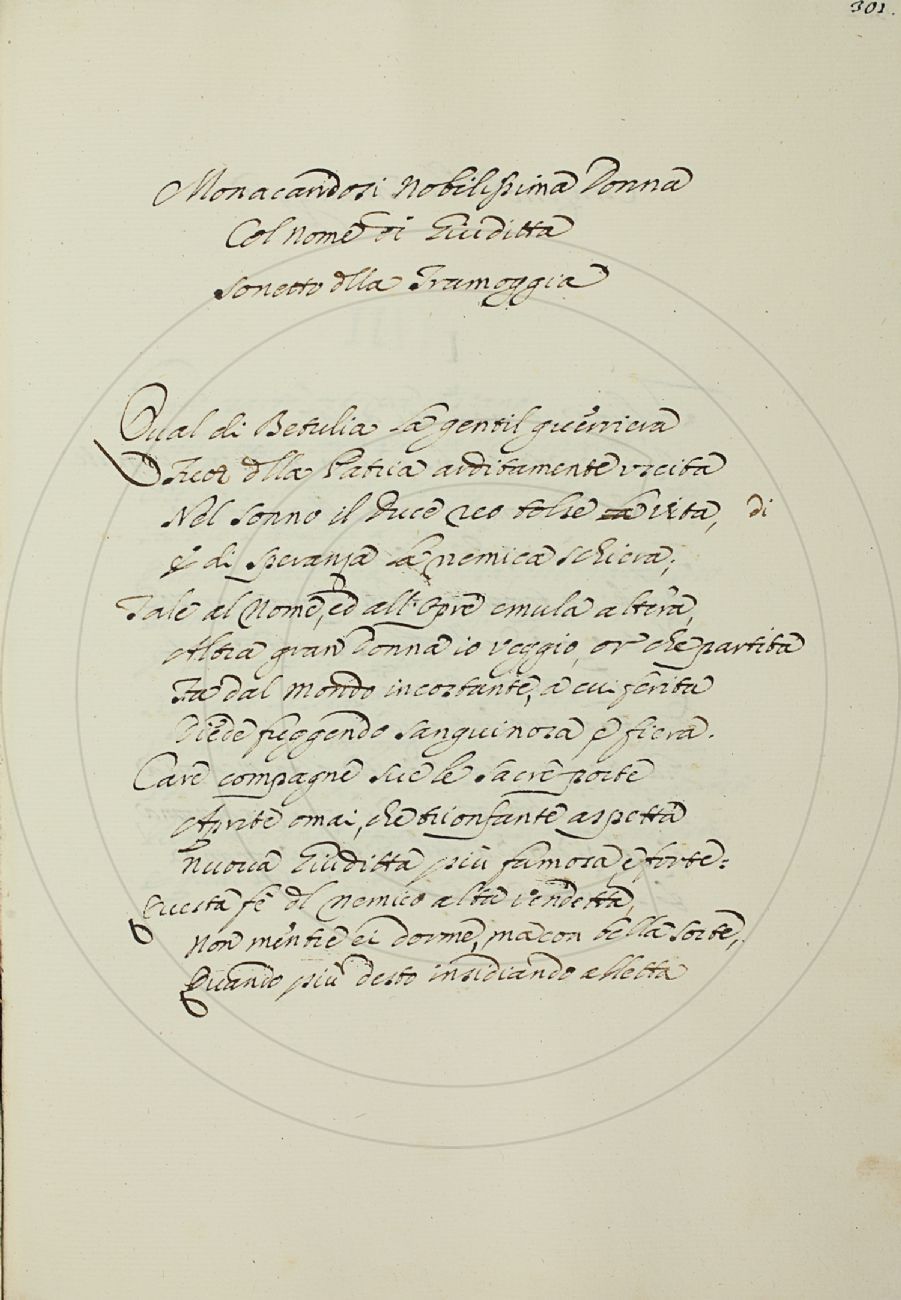 301.
Monacandosi Nobilissima Donna
Col Nome di Giuditta
Sonetto dlla Tramoggia
Qual di Betulia la gentil guerriera
Fuor dlla Patria arditamente uscita
Nel sonno il Duce reo tolse la vita, di
E di speranza la nemica schiera;
Tale al Nome, ed all' Opre emula altera,
Altra gran Donna io veggio, or che partita
Fa dal mondo incostante, a cui ferita
Diede fuggendo sanguinosa e fiera.
Care compagne sue le sacre porte
Aprite omai, che trionfante aspetta
Nuova Giuditta più famosa e forte:
Questa fe dl nemico alta vendetta,
Non mentre ei dorme, ma con bella sorte,
Quando più desto insidiando alletta